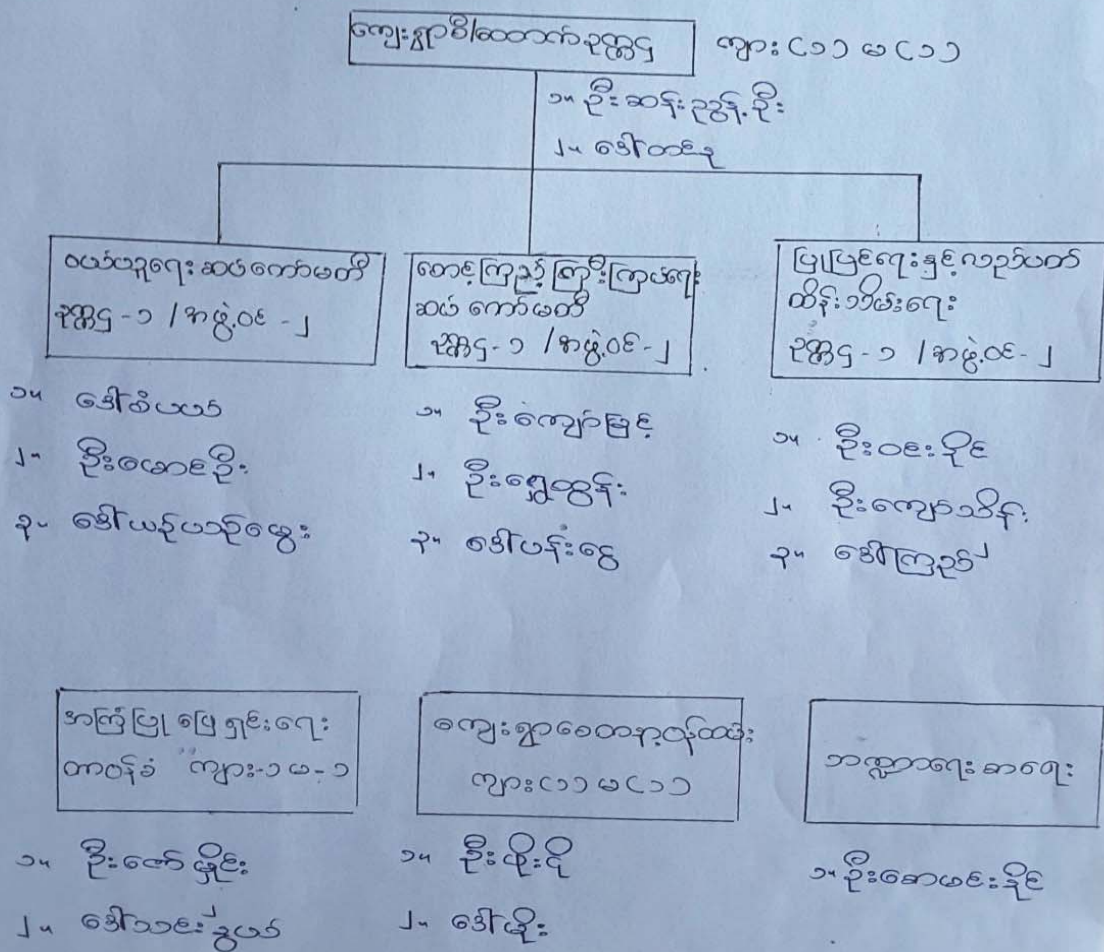 ကျေးရွာစီ/ထောက်ဥက္ကဌ ကျား (၁) မ (၁)
၁။ ဦးဆန်းညွန့်ဦး
၂။ ဒေါ်တင်နု
ဝယ်ယူရေးဆပ်ကော်မတီ
ဥက္ကဌ - ၁ / အဖွဲ့ဝင် - ၂
၁။ ဒေါ်စံပယ်
၂။ ဦးမောင်ဦး
၃။ ဒေါ်ယဉ်ယဉ်ထွေး
စောင့်ကြည့်ကြီးကြပ်ရေး
ဆပ် ကော်မတီ
ဥက္ကဌ - ၁ / အဖွဲ့ဝင် - ၂
၁။ ဦးကျော်မြင့်
၂။ ဦးရွှေထွန်း
၃။ ဒေါ်ပန်းငွေ
ပြုပြင်ရေးနှင့်လည်ပတ်
ထိန်းသိမ်းရေး
ဥက္ကဌ - ၁ / အဖွဲ့ဝင် - ၂
၁။ ဦးဝင်းပိုင်
၂။ ဦးကျော်သိန်း
၃။ ဒေါ်ကြည်
အကြံပြု ဖြေရှင်းရေး
တာဝန်ခံ ကျား-၁ မ-၁
၁။ ဦးဇော်မှိုင်း
၂။ ဒေါ်သင်းနွယ်
ကျေးရွာစေတနာ့ဝန်ထမ်း
ကျား (၁) မ (၁)
၁။ ဦးဖိုးငို
၂။ ဒေါ်မိုး
ဘဏ္ဍာရေး စာရေး
၁။ ဦးစောမင်းနိုင်